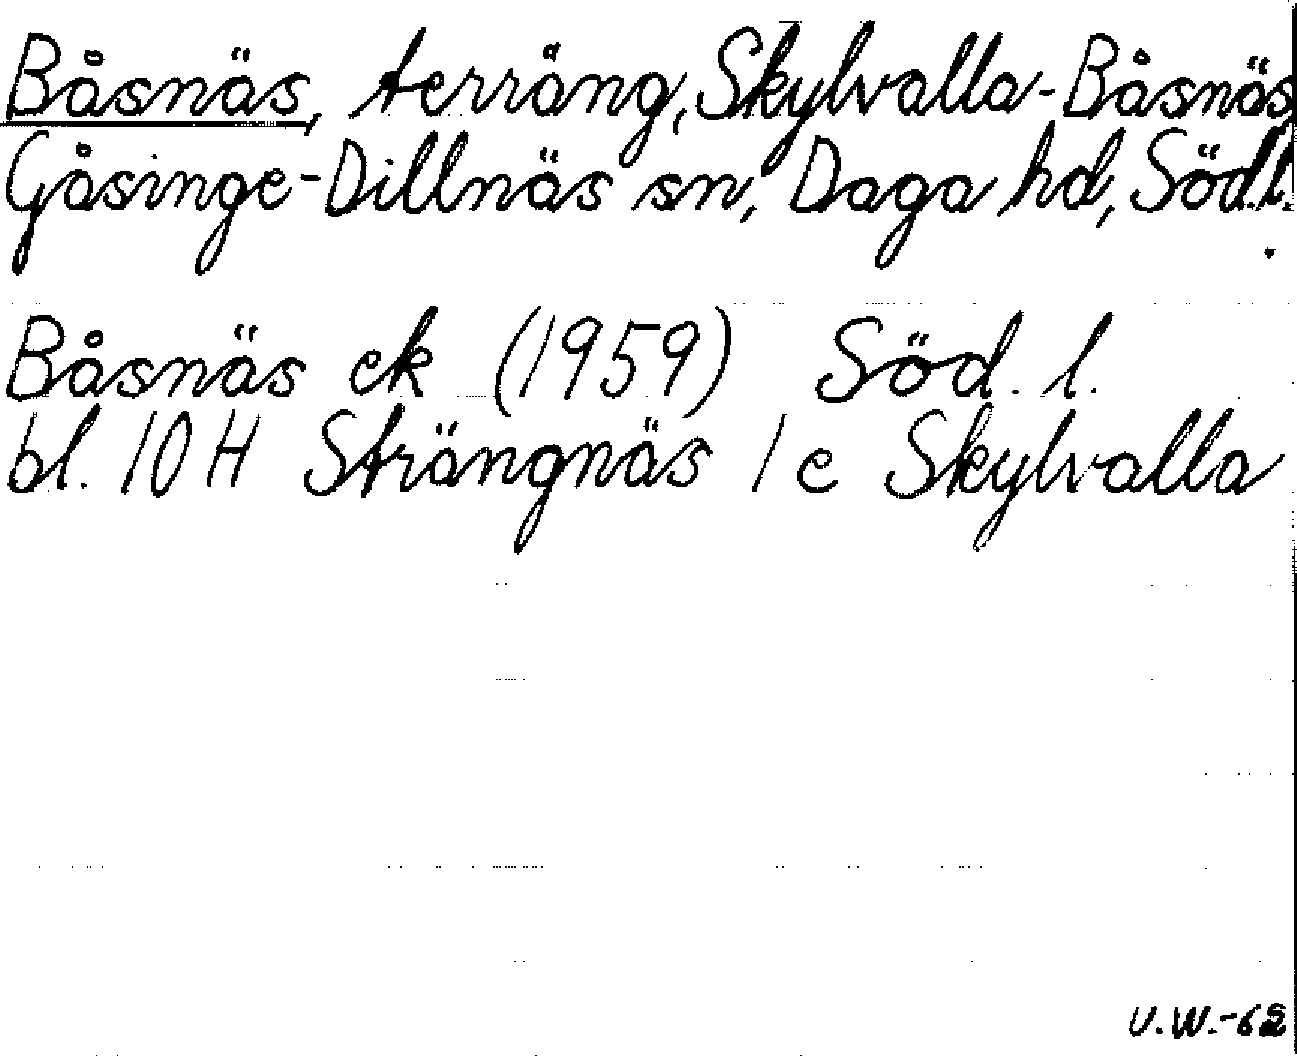 Båsnäs, terräng, Skylvalla-Båsnäs,
Gåsinge-Dillnäs sn, Daga hd, Södl.
Båsnäs ek (1959) Söd. l.
bl. 10 H Strängnäs 1 e Skylvalla
U.W.-62